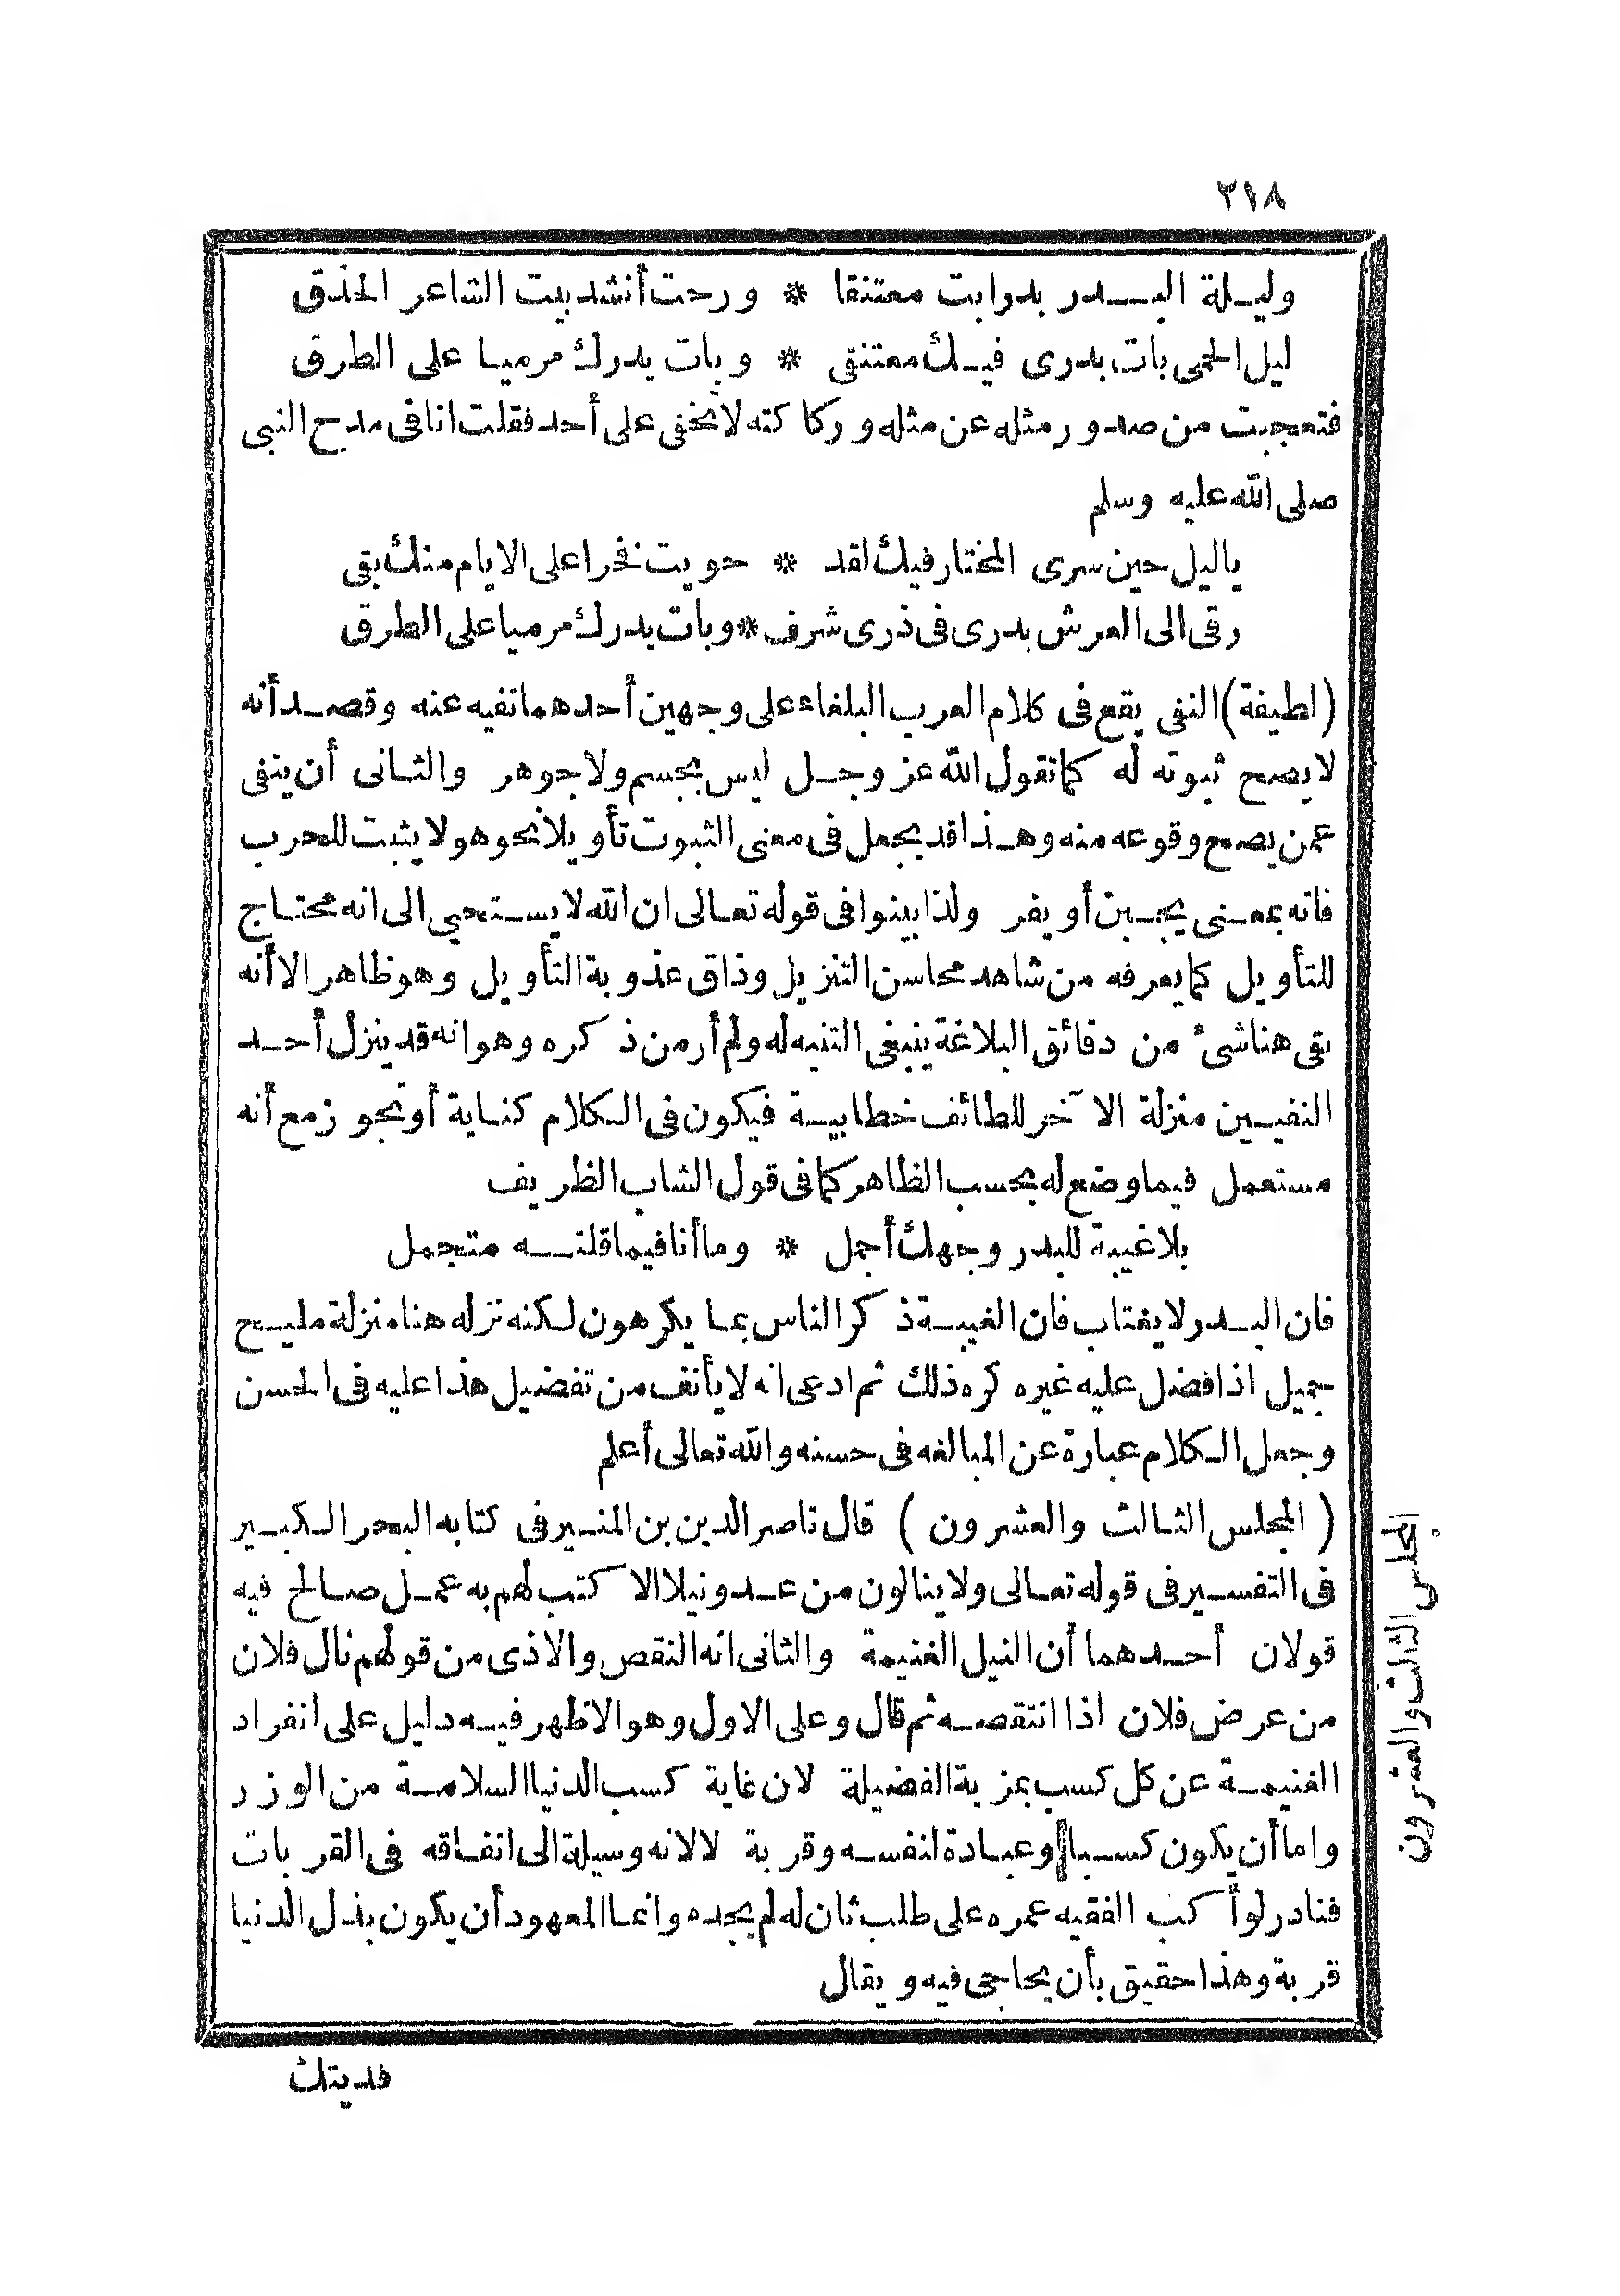 ٢١٨
وليلة البدر بدرا بت معتنقا * ورحت أنشد بيت الشاعر الحذق
ليل الحمى بات بدرى فيك معتنقى * وبات بدرك مرميا على الطرق
فتعجبت من صدور مثله عن مثله وركاكته لا تخفى على أحد فقلت انا فى مدح النبى
صلى الله عليه وسلم
ياليل حين سرى المختار فيك لقد * حويت فخرا على الايام منك بقى
رقى الى العرش بدرى فى ذرى شرف * وبات بدرك مرميا على الطرق
(لطيفة) النفى يقع فى كلام العرب البلغاء على وجهين أحدهما نفيه عنه وقصد أنه
لا يصح ثبوته له كما تقول الله عز وجل ليس بجسم ولا جوهر والثانى أن ينفى
عمن يصح وقوعه منه وهذا قد يجعل فى معنى الثبوت تأويلا نحو هو لا يثبت للحرب
فانه بمعنى يجبن أو يفر ولذا بينوا فى قوله تعالى ان الله لا يستحيى الى انه محتاج
للتأويل كما يعرفه من شاهد محاسن التنزيل وذاق عذوبة التأويل وهو ظاهر الا أنه
بقى هنا شئ من دقائق البلاغة ينبغى التنبه له ولم أر من ذكره وهو انه قد ينزل أحد
النفيين منزلة الآخر للطائف خطابية فيكون فى الكلام كناية أو تجوز مع أنه
مستعمل فيما وضع له بحسب الظاهر كما فى قول الشاب الظريف
بلا غيبة للبدر وجهك أجمل * وما أنا فيما قلته متجمل
فان البدر لا يغتاب فان الغيبة ذكر الناس بما يكرهون لكنه نزله هنا منزلة مليح
جميل اذا فضل عليه غيره كره ذلك ثم ادعى انه لا يأنف من تفضيل هذا عليه فى الحسن
وجعل الكلام عبارة عن المبالغه فى حسنه والله تعالى أعلم
(المجلس الثالث والعشرون) قال ناصر الدين بن المنير فى كتابه البحر الكبير
فى التفسير فى قوله تعالى ولا ينالون من عدو نيلا الا كتب لهم به عمل صالح فيه
قولان أحدهما أن النيل الغنيمة والثانى انه النقص والاذى من قولهم نال فلان
من عرض فلان اذا انتقصه ثم قال وعلى الاول وهو الاظهر فيه دليل على انفراد
الغنيمة عن كل كسب بمزية الفضيلة لان غاية كسب الدنيا السلامة من الوزر
واما أن يكون كسبا وعبادة لنفسه وقربة لا لانه وسيلة الى انفاقه فى القربات
فنادر لو أكب الفقيه عمره على طلب ثان له لم يجده وانما المعهود أن يكون بذل الدنيا
قربة وهذا حقيق بأن يحاجى فيه ويقال
فديتك
المجلس الثالث والعشرون